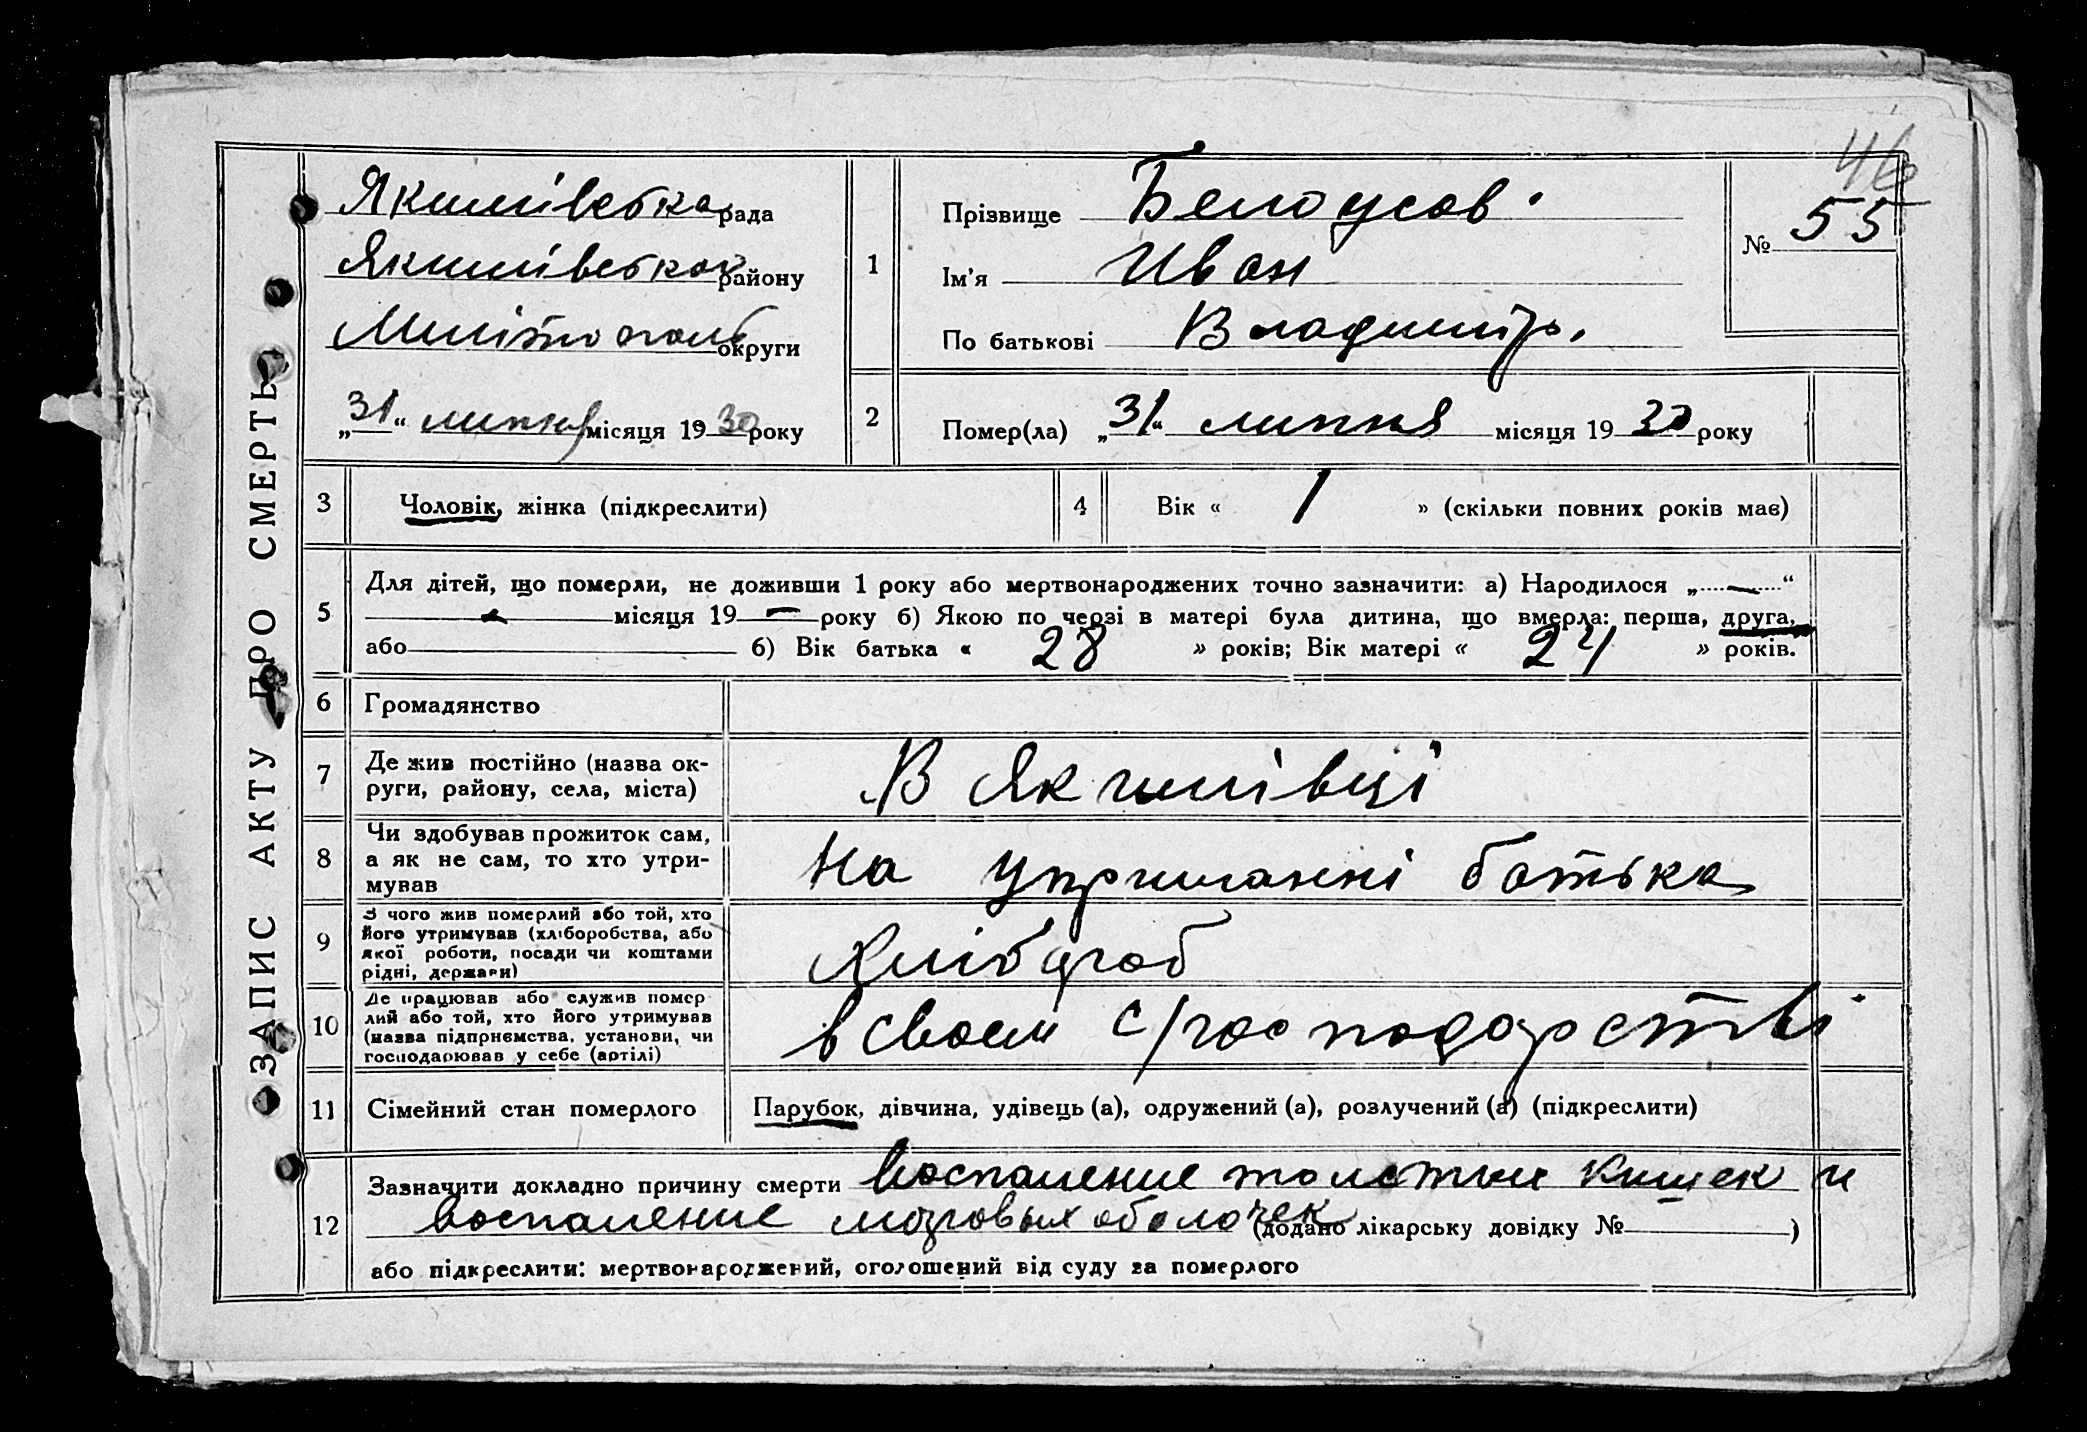 ЗАПИС АКТУ ПРО СМЕРТЬ
Якимівська рада
Якимівського району
Мелітопол округи
„31“ липня місяця 1930 року
1
Прізвище Белоусов
Ім'я Иван
По батькові Владимір.
46
№ 55
2
Помер(ла) „31“ липня місяця 1930 року
3 Чоловік, жінка (підкреслити)
4 Вік « 1 » (скільки повних років має)
5
Для дітей, що померли, не доживши 1 року або мертвонароджених точно зазначити: а) Народилося „ — “
— місяця 19 — року б) Якою по черзі в матері була дитина, що вмерла: перша, друга,
або б) Вік батька « 28 » років; Вік матері « 24 » років.
6 Громадянство
7 Де жив постійно (назва ок-
руги, району, села, міста)
В Якимівці
8 Чи здобував прожиток сам,
а як не сам, то хто утри-
мував
На утриманні батька
9 З чого жив померлий або той, хто
його утримував (хліборобства, або
якої роботи, посади чи коштами
рідні, держави)
Хлібороб
10 Де працював або служив помер
лий або той, хто його утримував
(назва підприємства, установи, чи
господарював у себе (артілі)
в своем с/господарстві
11 Сімейний стан померлого
Парубок, дівчина, удівець (а), одружений (а), розлучений (а) (підкреслити)
12
Зазначити докладно причину смерти Воспаление толстых кишек и
воспаление мозговых оболочек (додано лікарську довідку № )
або підкреслити: мертвонароджений, оголошений від суду за померлого